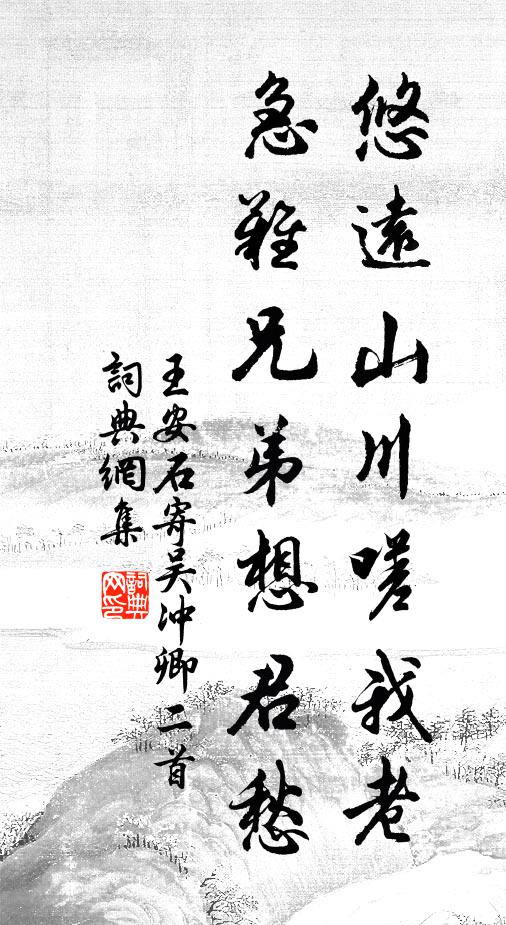 悠遠山川嗟我老
急難兄弟想君愁
王安石寄吴冲卿二首
詞典網集
詞典网印